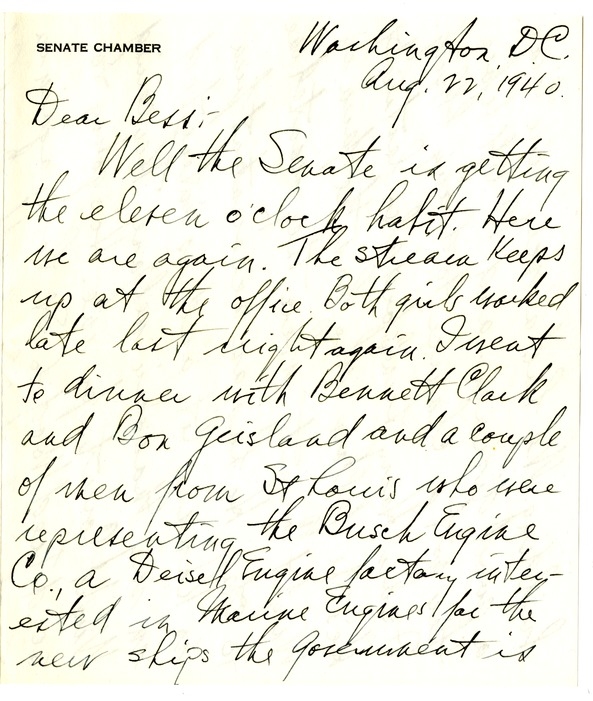 SENATE CHAMBER
Washington, D.C.
Aug. 22, 1940.
Dear Bess:-
Well the Senate is getting
the eleven o'clock habit. Here
we are again. The stream keeps
up at the office. Both girls worked
late last night again. I went
to dinner with Bennett Clark
and Bon Geisland and a couple
of men from St Louis who were
representing the Busch Engine
Co., a Deisel Engine factory inter-
ested in Marine Engines for the
new ships the government is